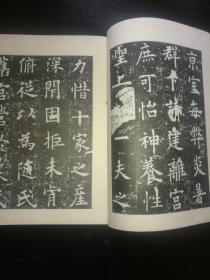 京室每弊炎暑
群下請建離宮
庶可怡神養性
聖上一夫之
力惜十家之產
深閉固拒未肯
俯從以為隨氏
舊宮